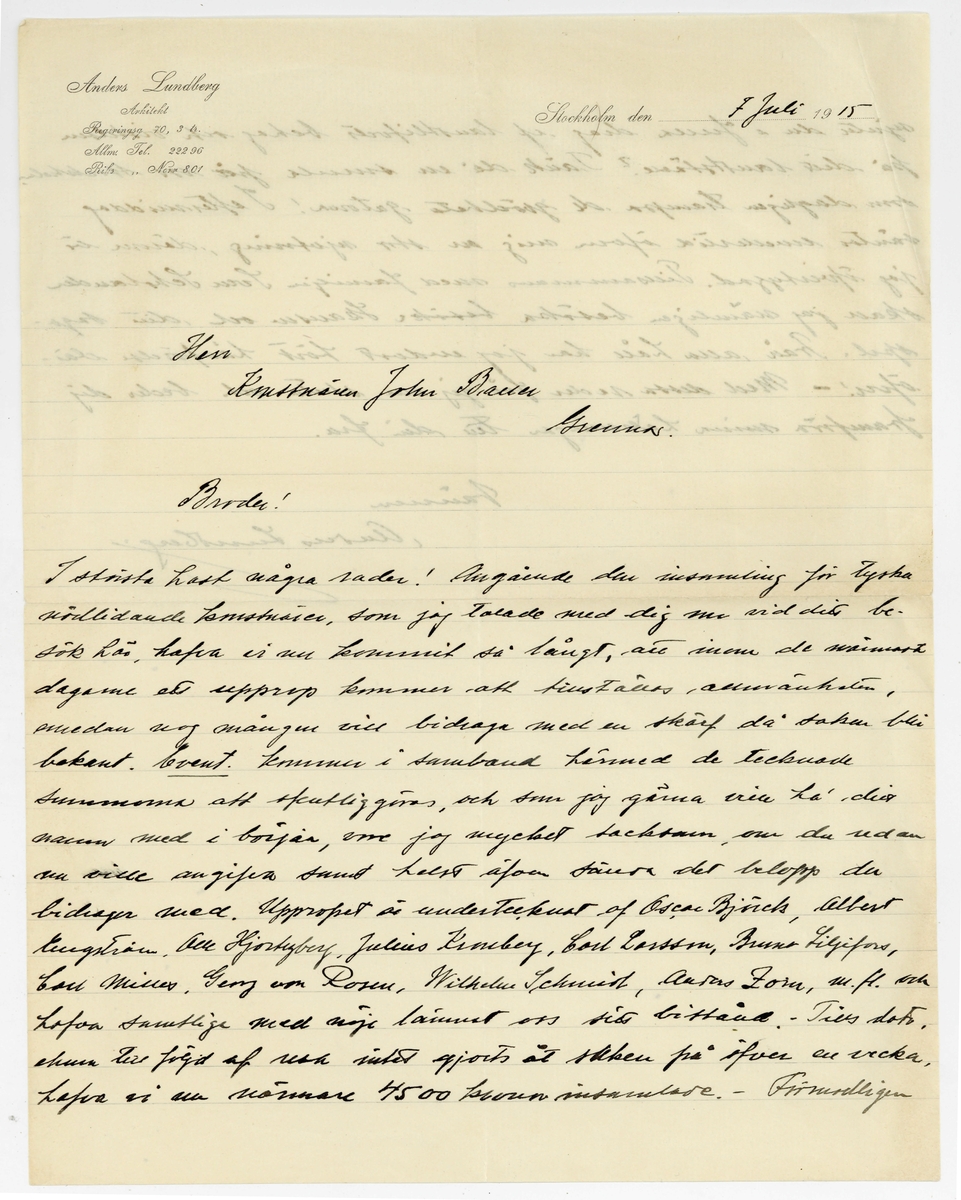 Anders Lundberg
Arkitekt
Regeringsg. 70, 3 tr.
Allm. Tel. 222 96
Riks „ Norr 801
Stockholm den 7 Juli 1915
Herr
Konstnären John Bauer
Grenna.
Broder!
I största hast några rader! Angående den insamling för tyska
nödlidande konstnärer, som jag talade med dig om vid ditt be-
sök här, hafva vi nu kommit så långt, att inom de närmast
dagarne ett upprop kommer att tillställas allmänheten,
emedan nog mången vill bidraga med en skärf då saken blir
bekant. Event. kommer i samband härmed de tecknade
summorna att offentliggöras, och som jag gärna vill ha ditt
namn med i början, vore jag mycket tacksam, om du redan
nu ville angifva samt helst äfven sända det belopp du
bidrager med. Uppropet är undertecknat af Oscar Björck, Albert
Engström, Olle Hjortzberg, Julius Kronberg, Carl Larsson, Bruno Liljefors,
Carl Milles, Georg von Rosen, Wilhelm Schmidt, Anders Zorn, m. fl. och
hafva samtliga med nöje lämnat oss sitt bistånd. - Tills dato,
ehuru till följd af resa intet gjorts åt saken på öfver en vecka,
hafva vi nu närmare 4500 kronor insamlade. - Förmodligen